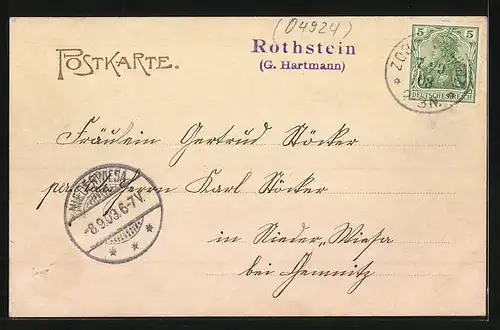 (04924)
POSTKARTE.
Rothstein
(G. Hartmann)
5 5
DEUTSCHES REICH
3N.
Fräulein Gertrud Stöcker
Herrn Karl Stöcker
in Nieder-Wiesa
bei Chemnitz
NIEDERWIESA
-8.9.03.6-7V.